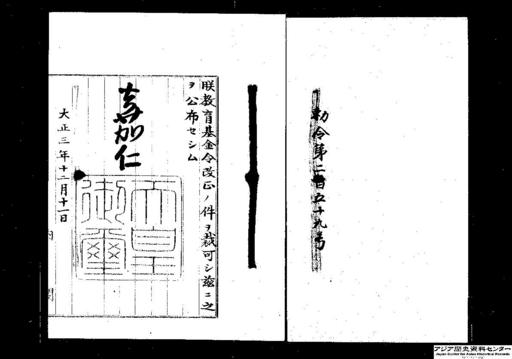 勅令第二百五十九号
朕教育基金令改正ノ件ヲ裁可シ玆ニ之
ヲ公布セシム
嘉仁
天皇
御璽
大正三年十二月十一日
内閣
アジア歴史資料センター
Japan Center for Asian Historical Records